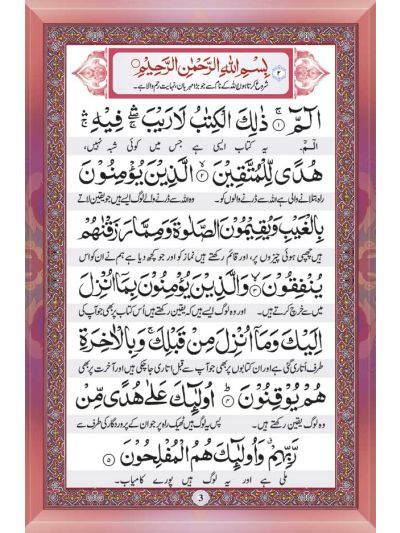 بِسْمِ اللّٰهِ الرَّحْمٰنِ الرَّحِيْمِ
شروع کرتا ہوں اللہ کے نام سے جو بڑا مہربان، نہایت رحم والا ہے۔
الٓمّٓ ۚ﴿۱﴾ ذٰلِكَ الْكِتٰبُ لَا رَيْبَ ۛۚ فِيْهِ ۛۚ
الٓمّٓ۔ یہ کتاب ایسی ہے جس میں کوئی شبہ نہیں،
هُدًى لِّلْمُتَّقِيْنَ ۙ﴿۲﴾ الَّذِيْنَ يُؤْمِنُوْنَ
راہ بتلانے والی ہے اللہ سے ڈرنے والوں کو۔ وہ اللہ سے ڈرنے والے لوگ ایسے ہیں جو یقین لاتے
بِالْغَيْبِ وَيُقِيْمُوْنَ الصَّلٰوةَ وَمِمَّا رَزَقْنٰهُمْ
ہیں چھپی ہوئی چیزوں پر، اور قائم رکھتے ہیں نماز کو اور جو کچھ دیا ہے ہم نے ان کو اس
يُنْفِقُوْنَ ۙ﴿۳﴾ وَالَّذِيْنَ يُؤْمِنُوْنَ بِمَآ اُنْزِلَ
میں سے خرچ کرتے ہیں۔ اور وہ لوگ ایسے ہیں کہ یقین رکھتے ہیں اُس کتاب پر بھی جو آپ کی
اِلَيْكَ وَمَآ اُنْزِلَ مِنْ قَبْلِكَ ۚ وَبِالْاٰخِرَةِ
طرف اُتاری گئی ہے اور ان کتابوں پر بھی جو آپ سے قبل اتاری جا چکی ہیں اور آخرت پر بھی
هُمْ يُوْقِنُوْنَ ؕ﴿۴﴾ اُولٰٓئِكَ عَلٰى هُدًى مِّنْ
وہ لوگ یقین رکھتے ہیں۔ پس یہ لوگ ہیں ٹھیک راہ پر جو ان کے پروردگار کی طرف سے
رَّبِّهِمْ ۗ وَاُولٰٓئِكَ هُمُ الْمُفْلِحُوْنَ ﴿۵﴾
ملی ہے اور یہ لوگ ہیں پورے کامیاب۔
3